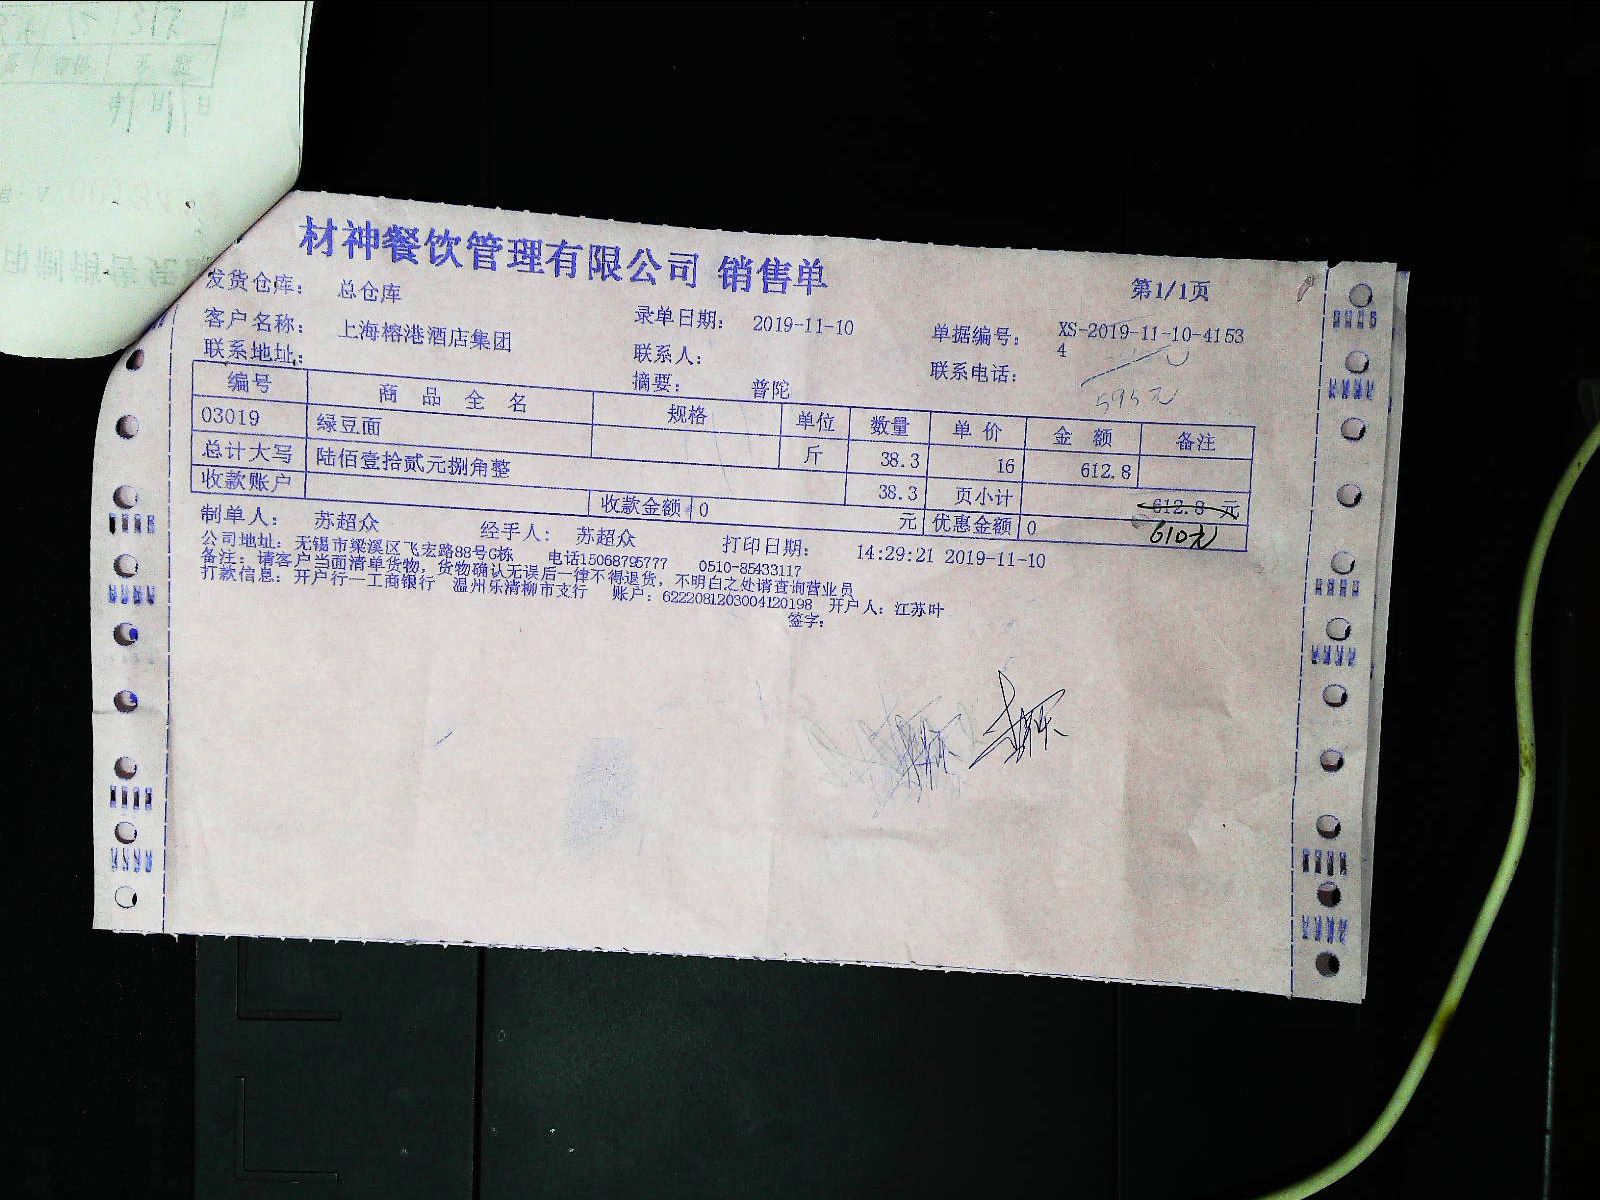 材神餐饮管理有限公司 销售单
第1/1页
发货仓库： 总仓库
客户名称： 上海榕港酒店集团 录单日期： 2019-11-10 单据编号： XS-2019-11-10-41534
联系地址： 联系人： 联系电话：
摘要： 普陀
595元
编号 商 品 全 名 规格 单位 数量 单 价 金 额 备注
03019 绿豆面 斤 38.3 16 612.8
总计大写 陆佰壹拾贰元捌角整 38.3 页小计 612.8 元
收款账户 收款金额 0 元 优惠金额 0 610元
制单人： 苏超众 经手人： 苏超众 打印日期： 14:29:21 2019-11-10
公司地址：无锡市梁溪区飞宏路88号G栋 电话15068795777 0510-85433117
备注：请客户当面清单货物，货物确认无误后一律不得退货，不明白之处请查询营业员
打款信息：开户行—工商银行 温州乐清柳市支行 账户：6222081203004120198 开户人：江苏叶
签字：